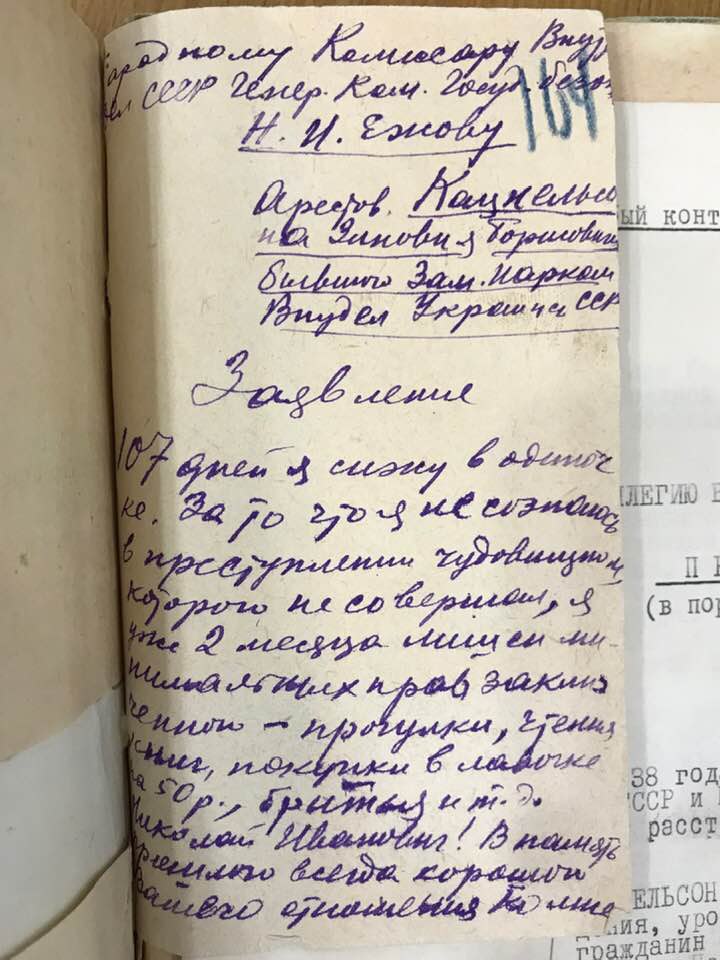 Народному Комисару Внут
дел СССР Генер. Ком. Госуд. безоп
Н. И. Ежову
164
Арестов. Кацнельсо
на Зиновия Борисовича
бывшего Зам. Нарком
Внудел Украины ССР
Заявление
107 дней я сижу в одиноч
ке. За то что я не сознаюсь
в преступлении чудовищном,
которого не совершал, я
уже 2 месяца лишен ми-
нимальных прав заклю
ченного – прогулки, чтения
книг, покупки в лавочке
на 50 р., бритья и т. д.
Николай Иванович! В память
прошлого всегда хорошого
Вашего отношения ко мне
ЫЙ КОНТ
ЛЕГИЮ В
П Р
(в пор
38 год
СССР и
расст
ЕЛЬСОН
уро
гражданин